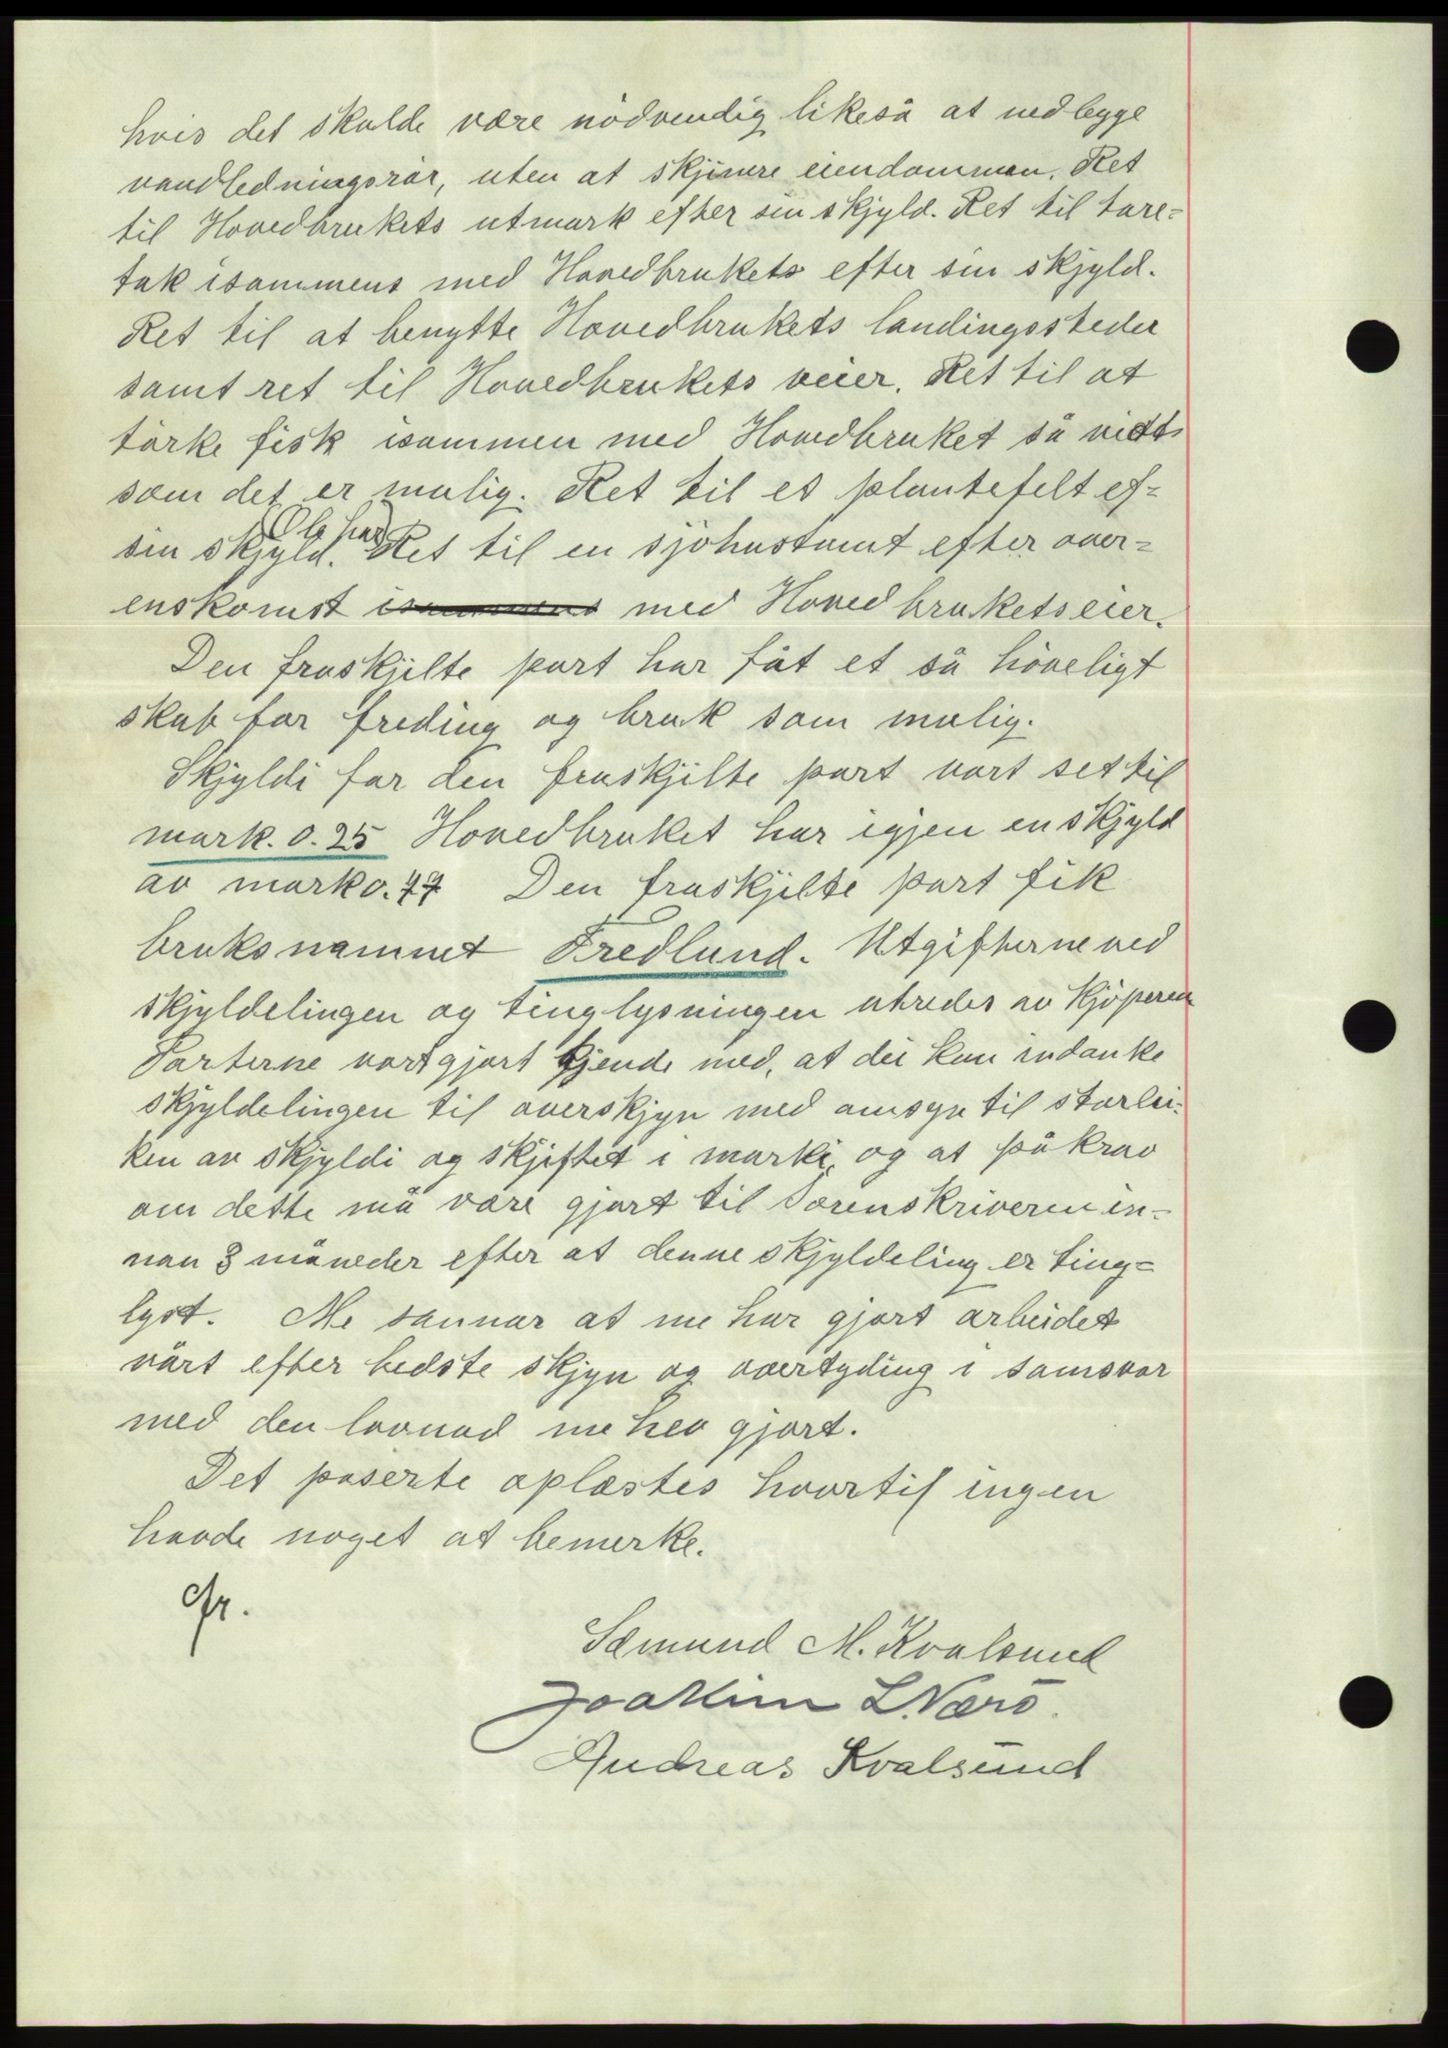 hvis det skulde være nödvendig likeså at nedlegge
vandledningsrör, uten at skjemme eiendommen. Ret
til Hovedbrukets utmark efter sin skjyld. Ret til tare-
tak isammens med Hovedbrukets efter sin skjyld.
Ret til at benytte Hovedbrukets landingssteder
samt ret til Hovedbrukets veier. Ret til at
törke fisk isammen med Hovedbruket så vidt
som det er mulig. Ret til et plantefelt ef-
sin skjyld. Ret til en sjöhustomt efter over-
enskomst isammens med Hovedbrukets eier.
Den fraskjilte part har fåt et så höveligt
skap for freding og bruk som mulig.
Skjyldi for den fraskjilte part vart set til
mark. 0.25 Hovedbruket har igjen en skjyld
av mark 0.77 Den fraskjilte part fik
bruksnamnet Fredlund. Utgifterne ved
skjyldelingen og tinglysningen utredes av kjöperen
Parterne vart gjort kjende med, at dei kan indanke
skjyldelingen til overskjyn med omsyn til storlei-
ken av skjyldi og skjiftet i marki, og at på krav
om dette må vere gjort til Sorenskriveren in-
nan 3 måneder efter at denne skjyldeling er ting-
lyst. Me sannar at me har gjort arbeidet
vårt efter bedste skjyn og overtyding i samsvar
med den lovnad me hev gjort.
Det paserte oplæstes hvortil ingen
havde noget at bemerke.
Sæmund M. Kvalsund
Joakim L. Nærö.
Andreas Kvalsund